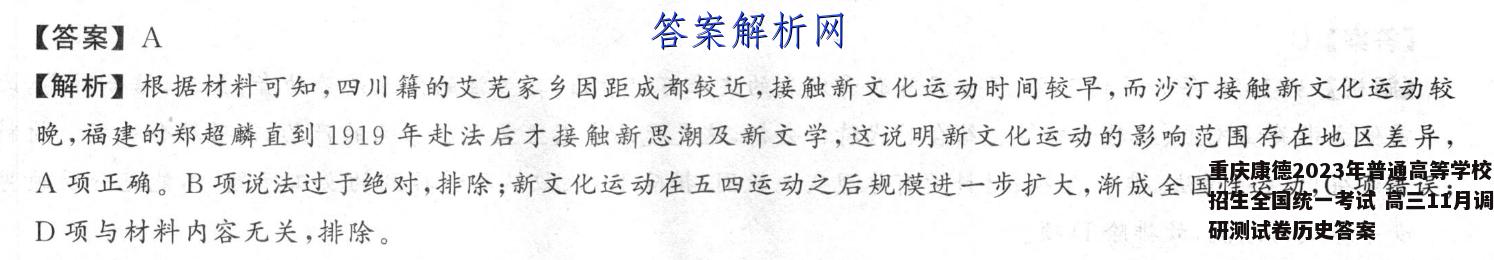 答案解析网
【答案】A
【解析】根据材料可知,四川籍的艾芜家乡因距成都较近,接触新文化运动时间较早,而沙汀接触新文化运动较
晚,福建的郑超麟直到 1919 年赴法后才接触新思潮及新文学,这说明新文化运动的影响范围存在地区差异,
A 项正确。B 项说法过于绝对,排除;新文化运动在五四运动之后规模进一步扩大,渐成全国性运动,C 项错误;
D 项与材料内容无关,排除。
重庆康德2023年普通高等学校
招生全国统一考试 高三11月调
研测试卷历史答案